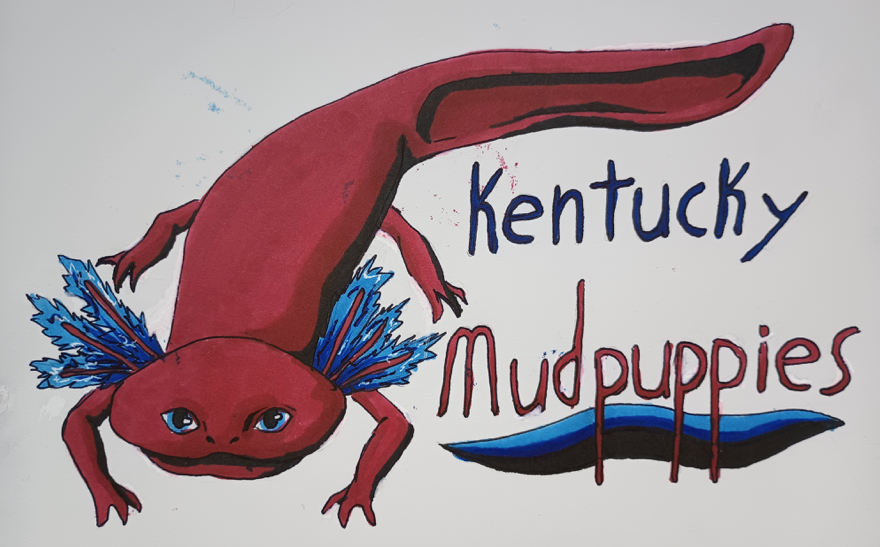 Kentucky
Mudpuppies